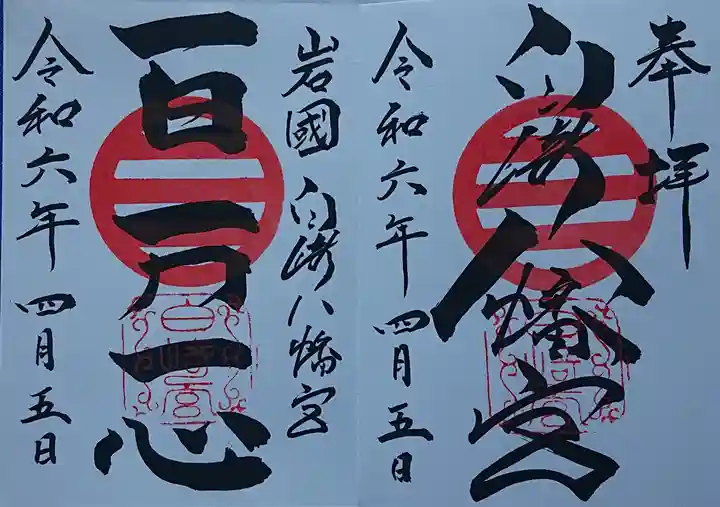 奉拝
白崎八幡宮
令和六年四月五日
岩國白崎八幡宮
一日一力一心
令和六年四月五日